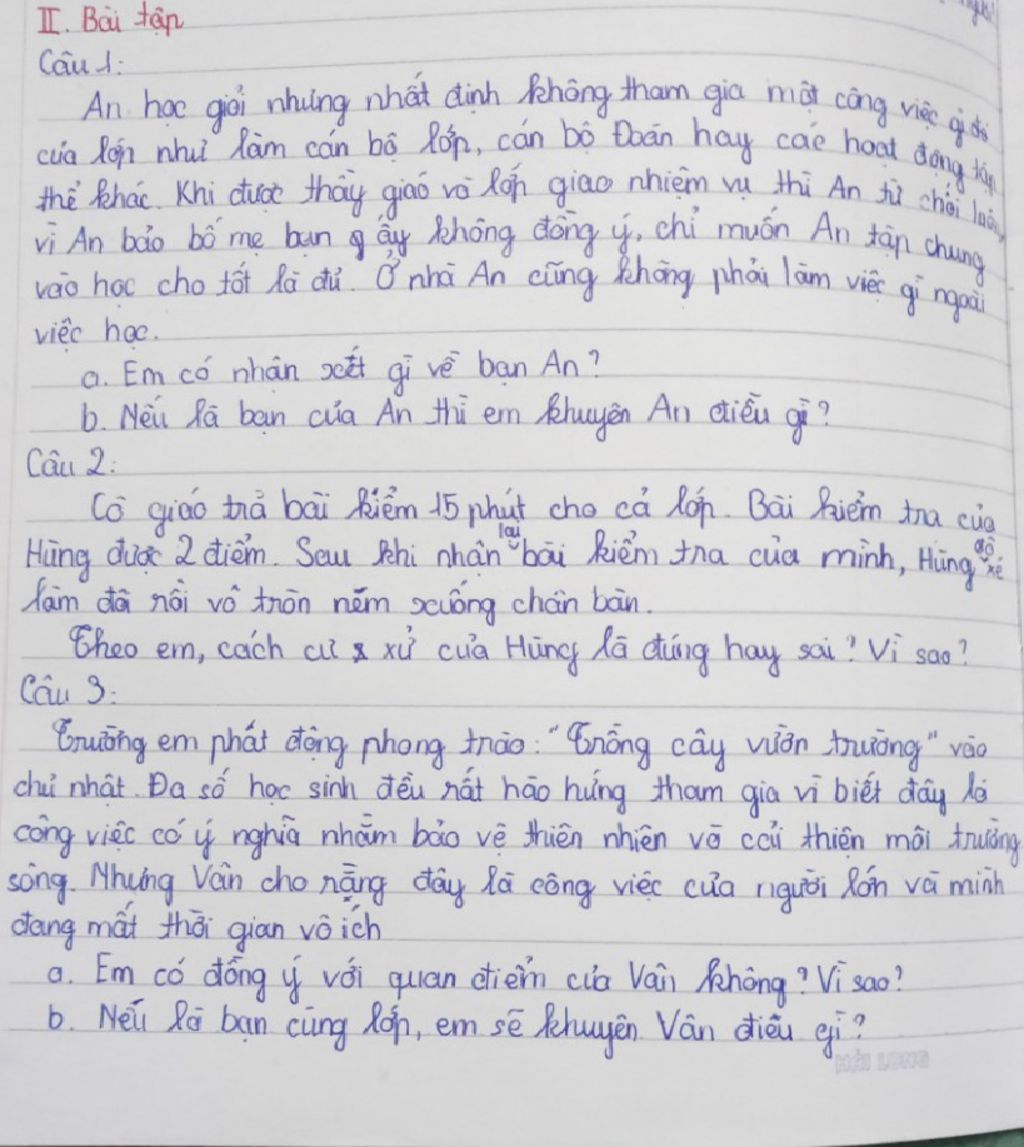 II. Bài tập
Câu 1:
An học giỏi nhưng nhất định không tham gia một công việc gì đó
của lớp như làm cán bộ lớp, cán bộ Đoàn hay các hoạt động tập
thể khác. Khi được thầy giáo và lớp giao nhiệm vụ thì An từ chối luôn,
vì An bảo bố mẹ bạn ấy không đồng ý, chỉ muốn An tập chung
vào học cho tốt là đủ. Ở nhà An cũng không phải làm việc gì ngoài
việc học.
a. Em có nhân xét gì về bạn An?
b. Nếu là bạn của An thì em khuyên An điều gì?
Câu 2:
Cô giáo trả bài kiểm 15 phút cho cả lớp. Bài kiểm tra của
Hùng được 2 điểm. Sau khi nhận lại bài kiểm tra của mình, Hùng đã xé
làm đôi rồi vò tròn ném xuống chân bàn.
Theo em, cách cư xử của Hùng là đúng hay sai? Vì sao?
Câu 3:
Trường em phát động phong trào: "Trồng cây vườn trường" vào
chủ nhật. Đa số học sinh đều rất hào hứng tham gia vì biết đây là
công việc có ý nghĩa nhằm bảo vệ thiên nhiên và cải thiện môi trường
sống. Nhưng Vân cho rằng đây là công việc của người lớn và mình
đang mất thời gian vô ích
a. Em có đồng ý với quan điểm của Vân không? Vì sao?
b. Nếu là bạn cùng lớp, em sẽ khuyên Vân điều gì?
HẢI LONG